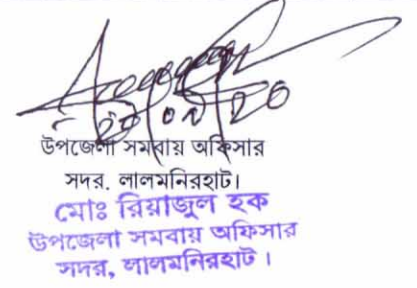 উপজেলা সমবায় অফিসার
সদর, লালমনিরহাট।
মোঃ রিয়াজুল হক
উপজেলা সমবায় অফিসার
সদর, লালমনিরহাট।